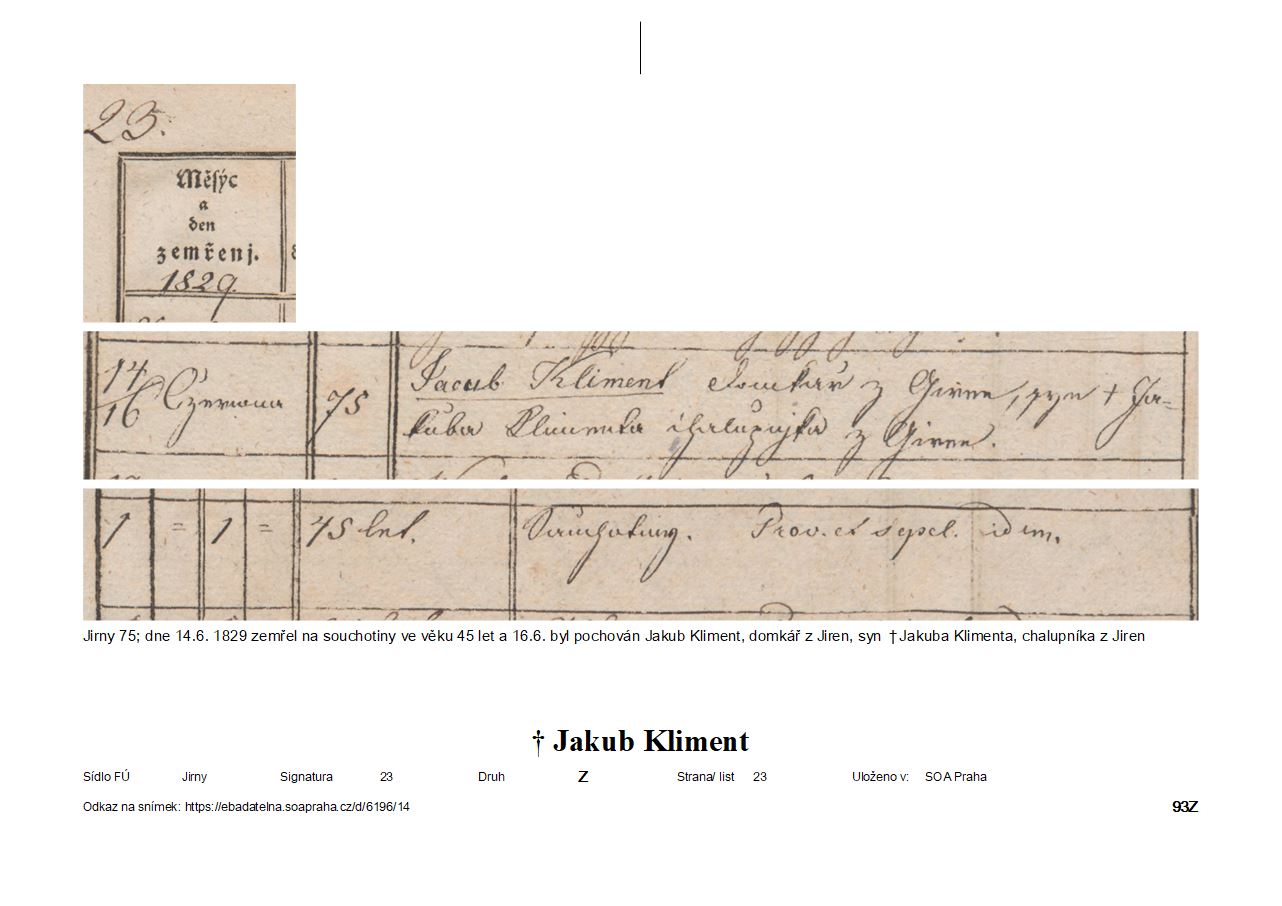 23.
Měsýc
a
den
zemřenj.
1829.
14/16 Czerwna 75 Jacub Kliment Domkář z Giren, syn † Ja-
kuba Klimenta chalupnjka z Giren.
1 = 1 = 45 let. Sauchotiny. Prov. et sepel. idem.
Jirny 75; dne 14.6. 1829 zemřel na souchotiny ve věku 45 let a 16.6. byl pochován Jakub Kliment, domkář z Jiren, syn †Jakuba Klimenta, chalupníka z Jiren
† Jakub Kliment
Sídlo FÚ Jirny Signatura 23 Druh Z Strana/ list 23 Uloženo v: SOA Praha
Odkaz na snímek: https://ebadatelna.soapraha.cz/d/6196/14 93Z